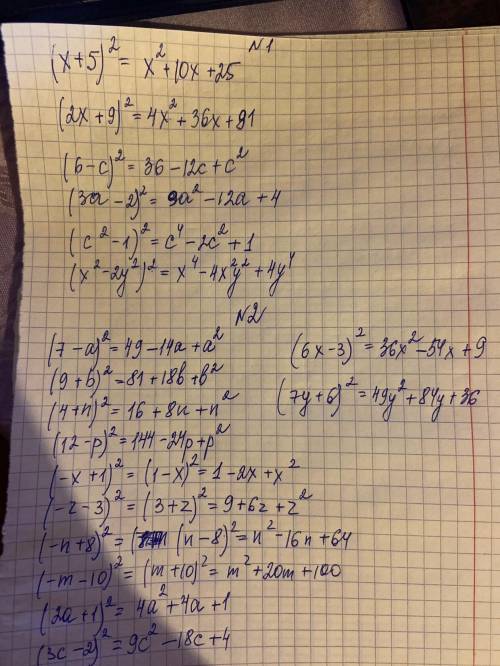 N1
(x+5)² = x²+10x+25
(2x+9)² = 4x²+36x+81
(6-c)² = 36-12c+c²
(3a-2)² = 9a²-12a+4
(c²-1)² = c⁴-2c²+1
(x²-2y²)² = x⁴-4x²y²+4y⁴
N2
(7-a)² = 49-14a+a²
(9+b)² = 81+18b+b²
(4+n)² = 16+8n+n²
(12-p)² = 144-24p+p²
(-x+1)² = (1-x)² = 1-2x+x²
(-z-3)² = (3+z)² = 9+6z+z²
(-n+8)² = ( (n-8)² = n²-16n+64
(-m-10)² = (m+10)² = m²+20m+100
(2a+1)² = 4a²+4a+1
(3c-2)² = 9c²-18c+4
(6x-3)² = 36x²-54x+9
(7y+6)² = 49y²+84y+36